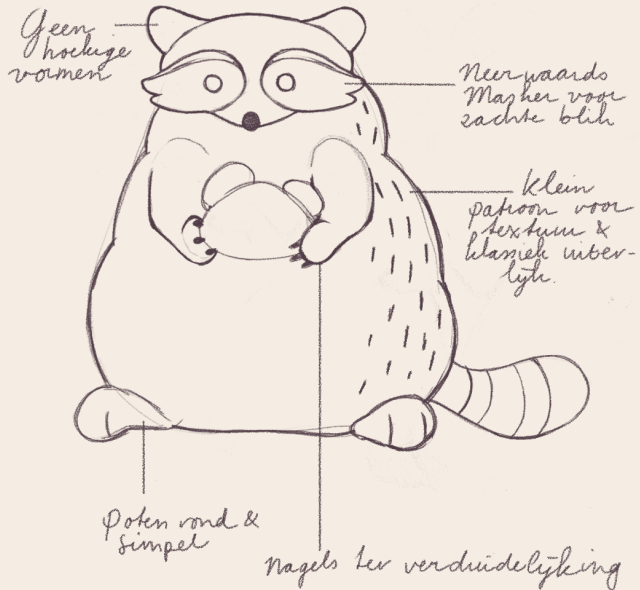 Geen
hoekige
vormen
Neerwaards
Masker voor
zachte blik
Klein
patroon voor
textuur &
klassiek uiter-
lijk.
Poten rond &
simpel
Nagels ter verduidelijking